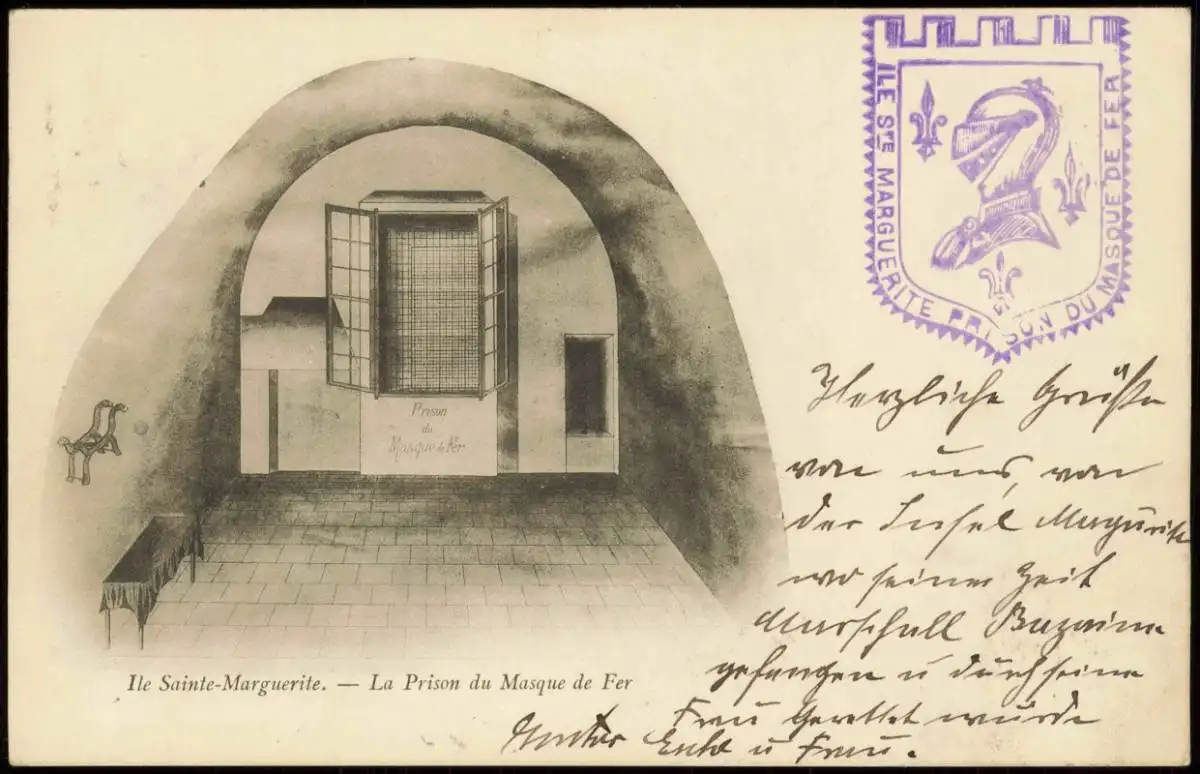 ILE STE MARGUERITE PRISON DU MASQUE DE FER
Prison
du
Masque de Fer
Herzliche Grüße
von uns, von
der Insel Magurite
wo seiner Zeit
Marschall Bazaine
gefangen u durch seine
Frau Gerettet wurde
u Frau.
Ile Sainte-Marguerite. — La Prison du Masque de Fer